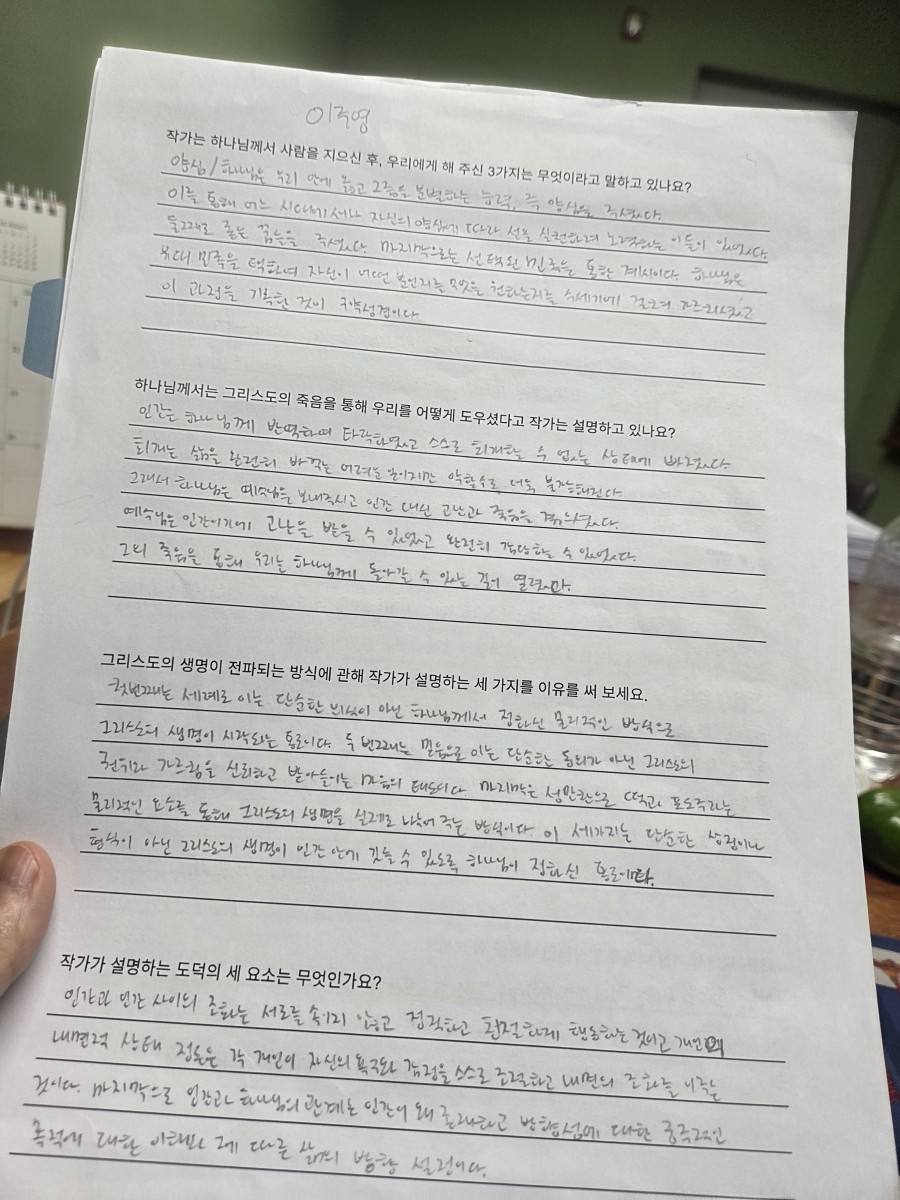 이주영
작가는 하나님께서 사람을 지으신 후, 우리에게 해 주신 3가지는 무엇이라고 말하고 있나요?
양심/하나님은 우리 안에 옳고 그름을 분별하는 능력, 즉 양심을 주셨다.
이를 통해 어느 시대에서나 자신의 양심에 따라 선을 실천하려 노력하는 이들이 있었다.
둘째로 좋은 꿈들을 주셨다. 마지막으로는 선택된 민족을 통한 계시이다. 하나님은
유대 민족을 택하여 자신이 어떤 분인지를 무엇을 원하는지를 수세기에 걸쳐 가르치셨고
이 과정을 기록한 것이 구약성경이다.
하나님께서는 그리스도의 죽음을 통해 우리를 어떻게 도우셨다고 작가는 설명하고 있나요?
인간은 하나님께 반역하여 타락하였고 스스로 회개할 수 없는 상태에 빠졌다.
회개는 삶을 완전히 바꾸는 어려운 일이지만 악할수록 더욱 불가능해진다.
그래서 하나님은 예수님을 보내주시고 인간 대신 고난과 죽음을 겪으셨다.
예수님은 인간이기에 고난을 받을 수 있었고 완전히 감당할 수 있었다.
그의 죽음을 통해 우리는 하나님께 돌아갈 수 있는 길이 열렸다.
그리스도의 생명이 전파되는 방식에 관해 작가가 설명하는 세 가지를 이유를 써 보세요.
첫번째는 세례로 이는 단순한 의식이 아닌 하나님께서 정하신 물리적인 방식으로
그리스도의 생명이 시작되는 통로이다. 두번째는 믿음으로 이는 단순한 동의가 아닌 그리스도의
권위와 가르침을 신뢰하고 받아들이는 마음의 태도이다. 마지막은 성만찬으로 떡과 포도주라는
물리적인 요소를 통해 그리스도의 생명을 실제로 나누어 주는 방식이다. 이 세가지는 단순한 상징이나
형식이 아닌 그리스도의 생명이 인간 안에 깃들 수 있도록 하나님이 정하신 통로이다.
작가가 설명하는 도덕의 세 요소는 무엇인가요?
인간과 인간 사이의 조화는 서로를 속이지 않고 정직하고 친절하게 행동하는 것이고 개인의
내면적 상태 정돈은 각 개인이 자신의 욕구와 감정을 스스로 조절하고 내면의 조화를 이루는
것이다. 마지막으로 인간과 하나님의 관계는 인간이 왜 존재하고 방향성에 대한 궁극적인
목적에 대한 이해와 그에 따른 삶의 방향 설정이다.